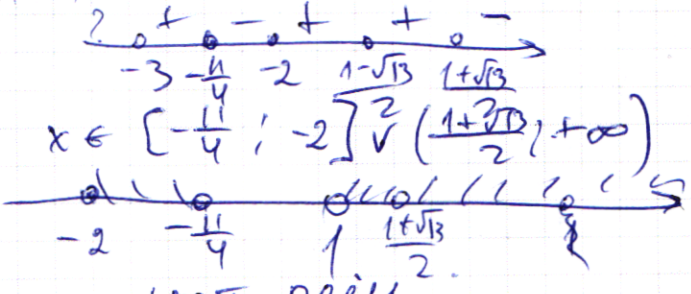 ? + - + + -
-3 -11/4 -2 (1-√13)/2 (1+√13)/2
x ∈ [-11/4 ; -2] ∨ ((1+√13)/2 ; +∞)
-2 -11/4 1 (1+√13)/2